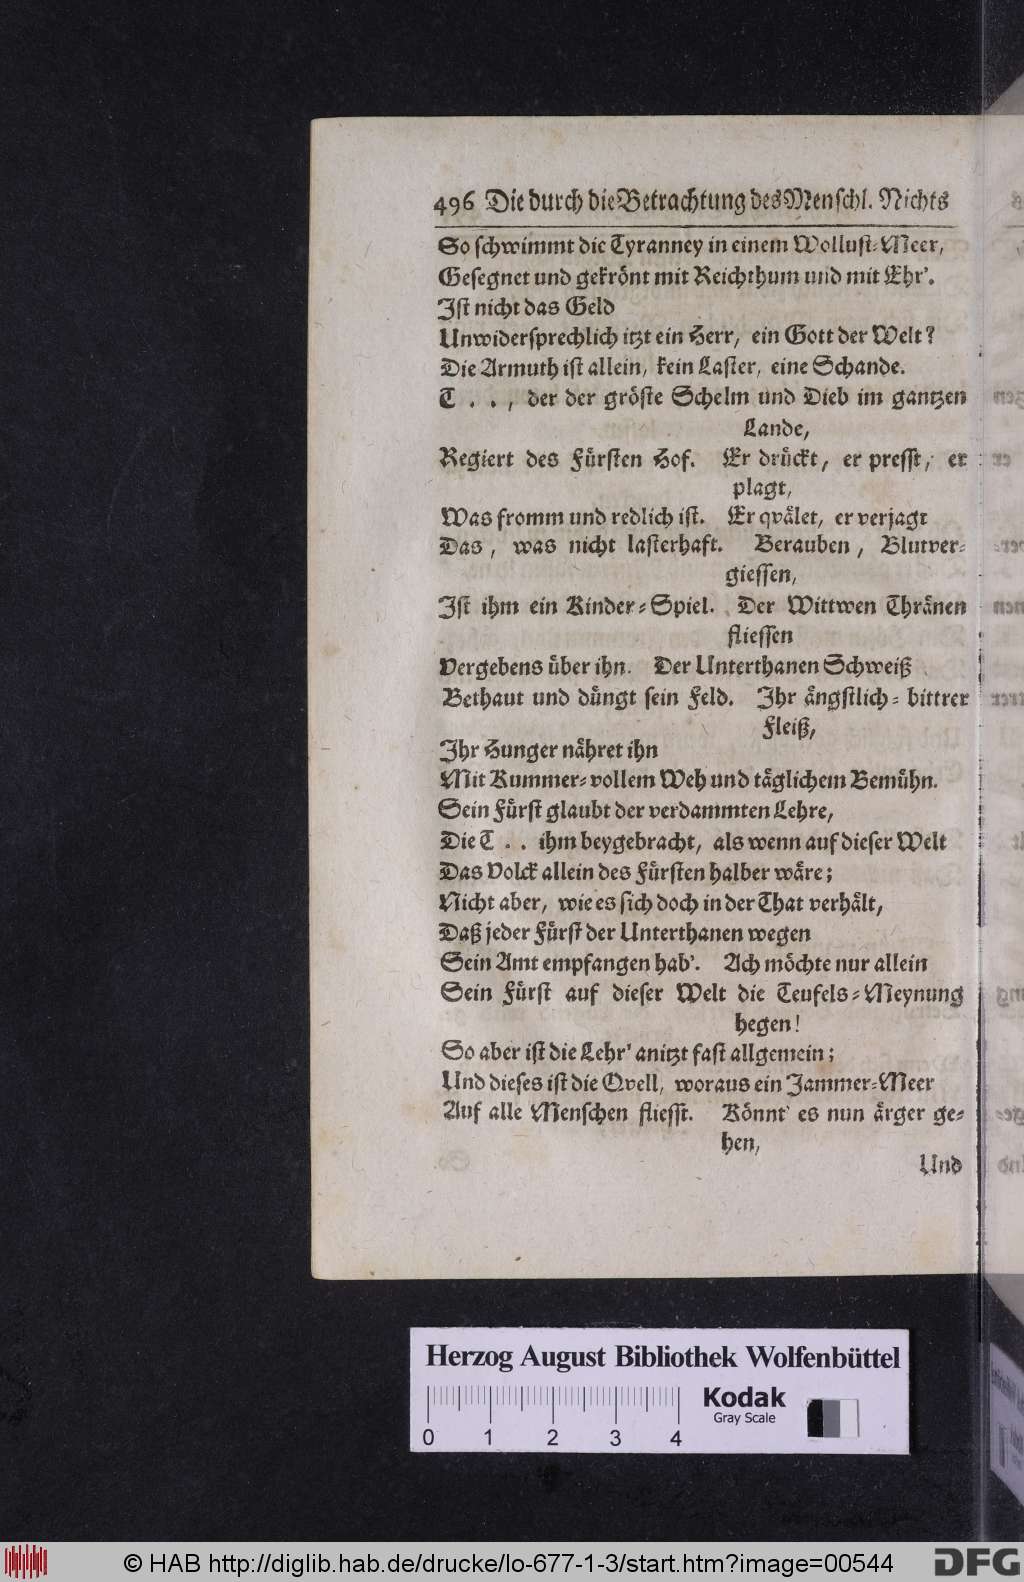 496 Die durch die Betrachtung des Menschl. Nichts
So schwimmt die Tyranney in einem Wollust-Meer,
Gesegnet und gekrönt mit Reichthum und mit Ehr'.
Ist nicht das Geld
Unwidersprechlich itzt ein Herr, ein Gott der Welt?
Die Armuth ist allein, kein Laster, eine Schande.
T . . , der der gröste Schelm und Dieb im gantzen
Lande,
Regiert des Fürsten Hof. Er drückt, er presst, er
plagt,
Was fromm und redlich ist. Er qvälet, er verjagt
Das, was nicht lasterhaft. Berauben, Blutver-
giessen,
Ist ihm ein Kinder-Spiel. Der Wittwen Thränen
fliessen
Vergebens über ihn. Der Unterthanen Schweiß
Bethaut und düngt sein Feld. Ihr ängstlich-bittrer
Fleiß,
Ihr Hunger nähret ihn
Mit Kummer-vollem Weh und täglichem Bemühn.
Sein Fürst glaubt der verdammten Lehre,
Die T . . ihm beygebracht, als wenn auf dieser Welt
Das Volck allein des Fürsten halber wäre;
Nicht aber, wie es sich doch in der That verhält,
Daß jeder Fürst der Unterthanen wegen
Sein Amt empfangen hab'. Ach möchte nur allein
Sein Fürst auf dieser Welt die Teufels-Meynung
hegen!
So aber ist die Lehr' anitzt fast allgemein;
Und dieses ist die Qvell, woraus ein Jammer-Meer
Auf alle Menschen fliesst. Könnt' es nun ärger ge-
hen,
Und
Herzog August Bibliothek Wolfenbüttel
Kodak
Gray Scale
0 1 2 3 4
© HAB http://diglib.hab.de/drucke/lo-677-1-3/start.htm?image=00544
DFG